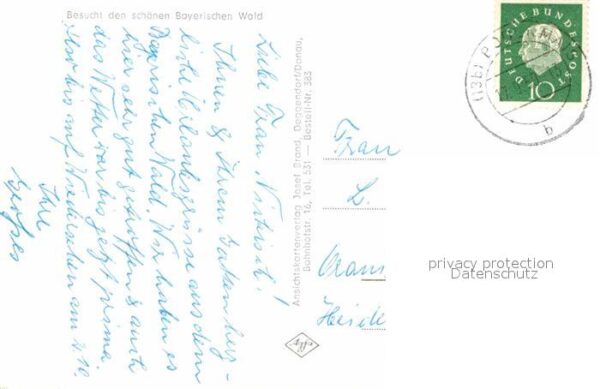 Besucht den schönen Bayerischen Wald
Liebe Frau
Ihnen & Ihrem Gatten herz-
liche Urlaubsgrüsse aus dem
Bayrischen Wald. Wir haben es
hier sehr gut getroffen & auch
das Wetter war bis jetzt prima
bis auf Wiedersehen am
Ihre
Ansichtskartenverlag Josef Brand, Deggendorf/Donau,
Bahnhofstr. 16, Tel. 531 — Bestell-Nr. 383
DEUTSCHE BUNDESPOST
10
(13b)
b
Frau
L.
Heide
privacy protection
Datenschutz